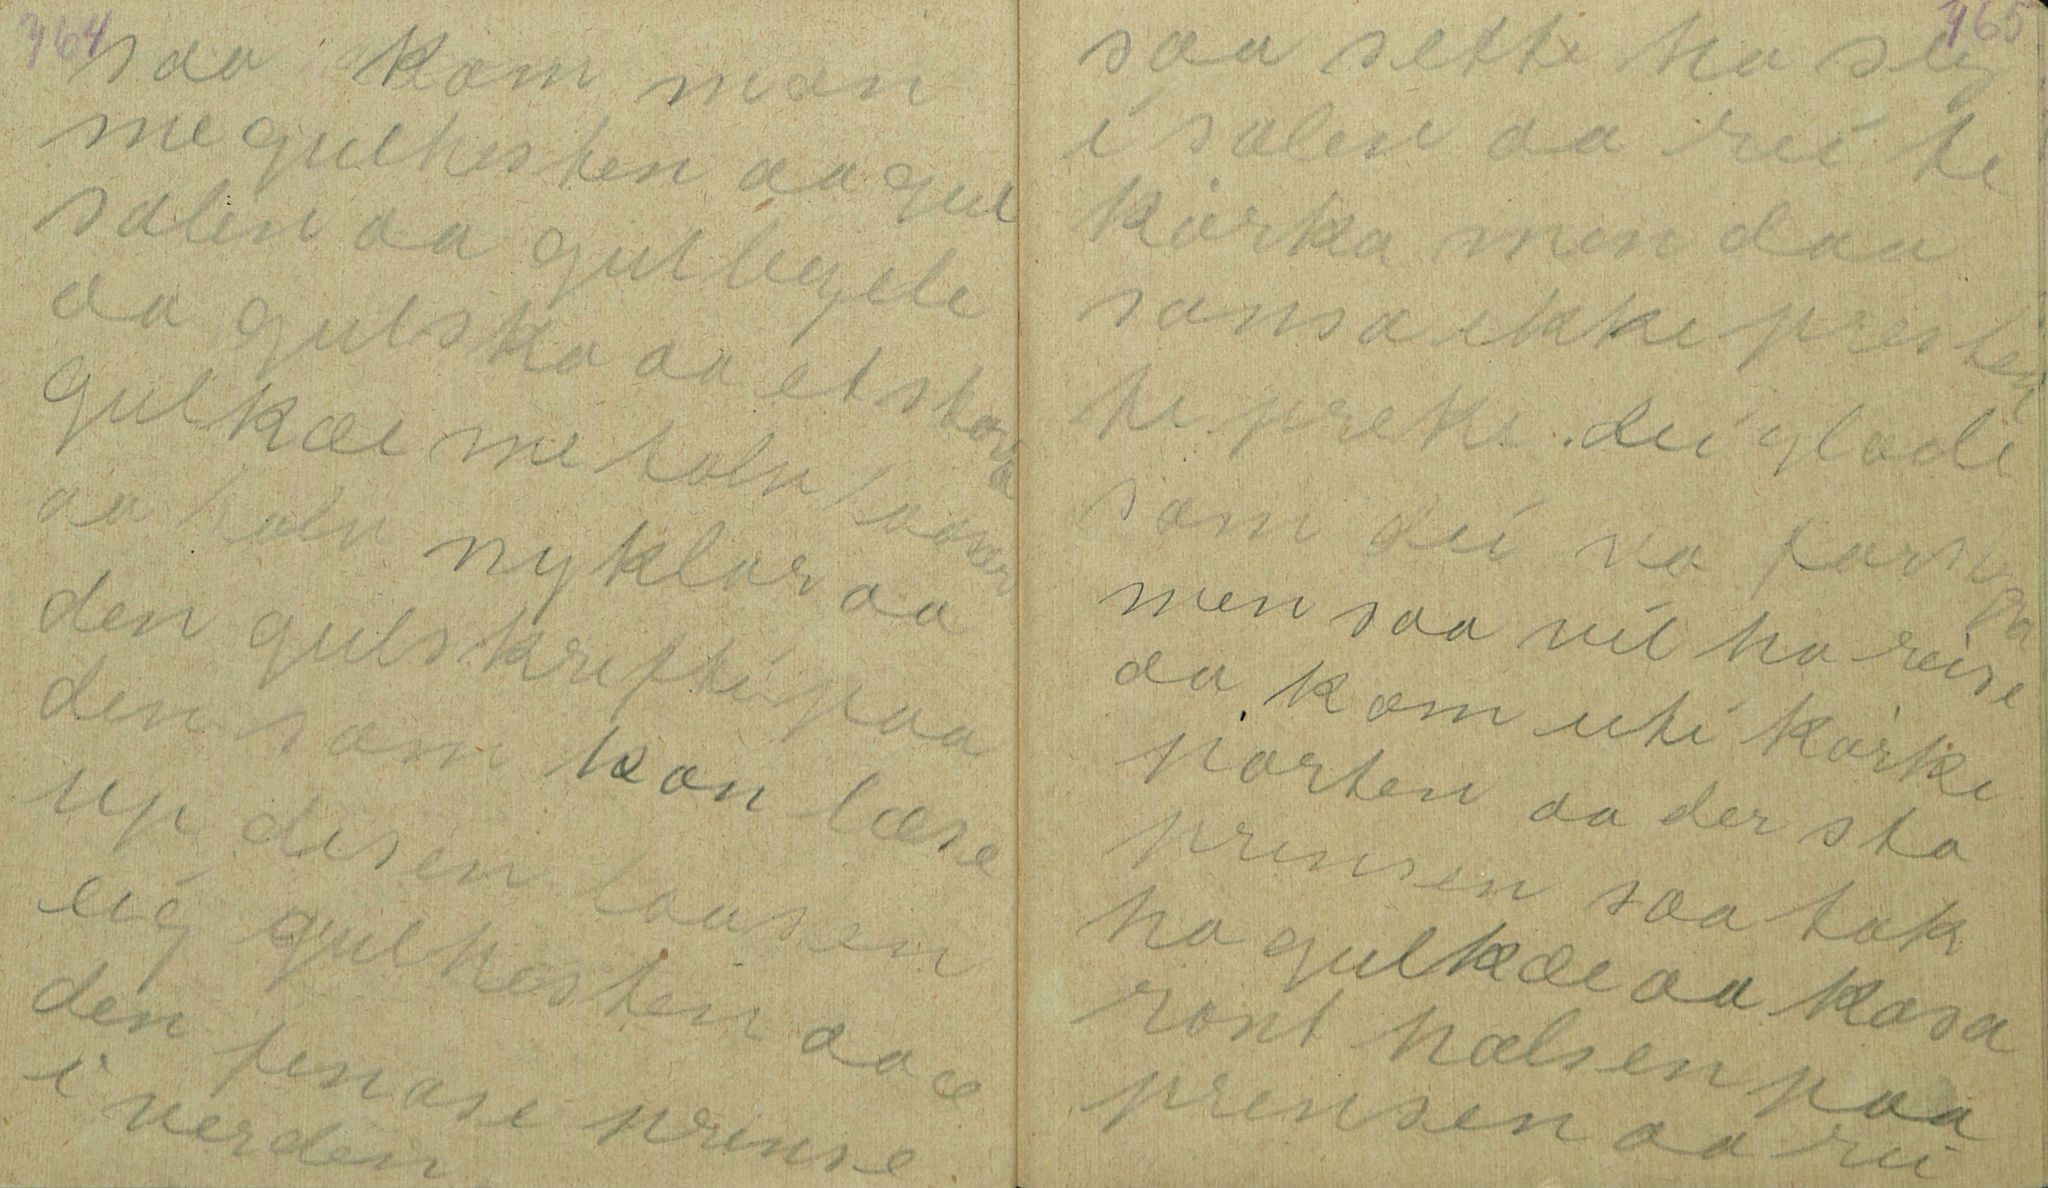 764
saa kom mon
me gulhesten aa gul
salen aa gulbegsle
aa gulsko aa et stort
gulkæe me tolv laaser
aa tolv nyklar aa
den gulskrefti paa
den som kan læse
up desen laasen
eig gulhesten aa æ
den finase prinse
i verden
765
saa sette ho seg
i salen aa rei te
kørka men daa
sansa ikke presten
te preke. dei glade
som dei va forsyga
men saa vil ho reise
aa kom uti kørke
porten aa der sto
prinsen saa tok
ho gulkæe aa kasa
ront halsen paa
prensen aa rei